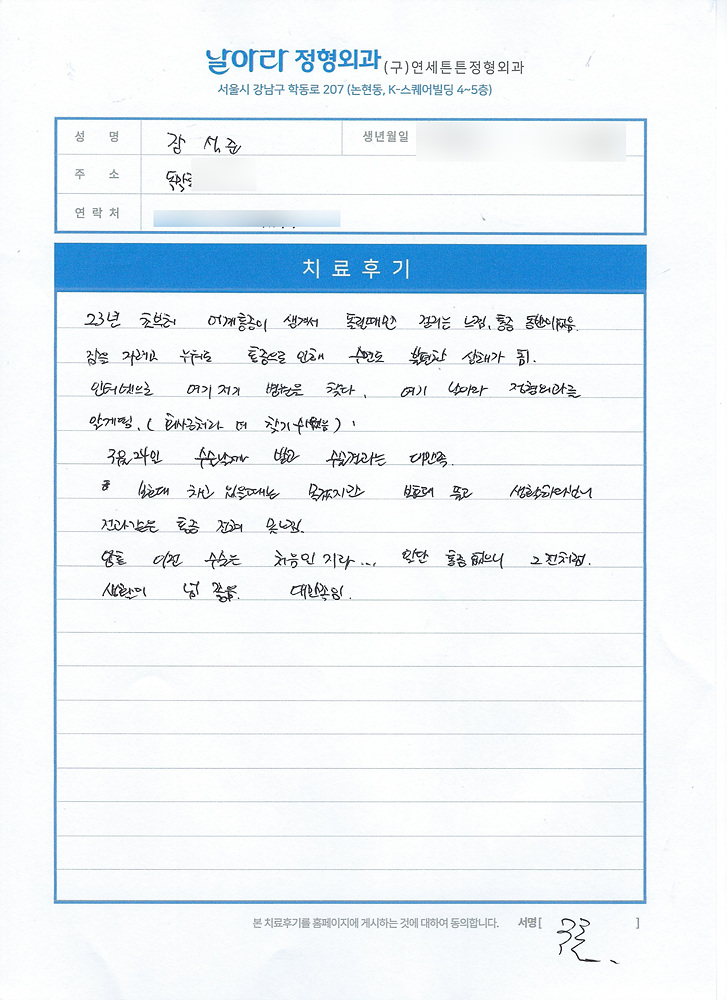 날아라 정형외과 (구)연세튼튼정형외과
서울시 강남구 학동로 207 (논현동, K-스퀘어빌딩 4~5층)
성 명 강 석준 생년월일
주 소 동작구
연 락 처
치 료 후 기
23년 초부터 어깨통증이 생겨서 돌릴때마다 걸리는 느낌, 통증 동반이 있음.
잠을 자려고 누워도 통증으로 인해 수면도 불편한 상태가 됨.
인터넷으로 여기저기 병원을 찾다, 여기 날아라 정형외과를
알게됨. (회사근처라 더 찾기 쉬웠음)
수술날짜 받고 수술결과는 대만족.
보호대 차고 있을때는 몰랐지만 보호대 풀고 생활하다보니
전과같은 통증 전혀 못느낌.
이런 수술은 처음인지라... 일단 통증 없으니 그전처럼.
생활이 넘 좋음. 대만족임.
본 치료후기를 홈페이지에 게시하는 것에 대하여 동의합니다. 서명 [ ]